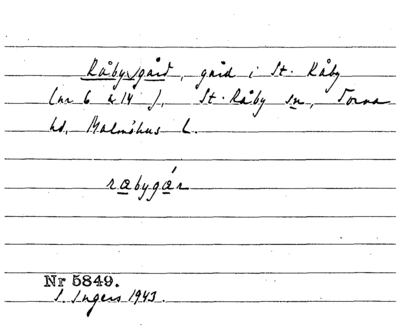 Råbygård, gård i St. Råby
(nr 6 & 14), St. Råby sn, Torna
hd, Malmöhus L.
rabygár
Nr 5849.
I. Ingers 1943.